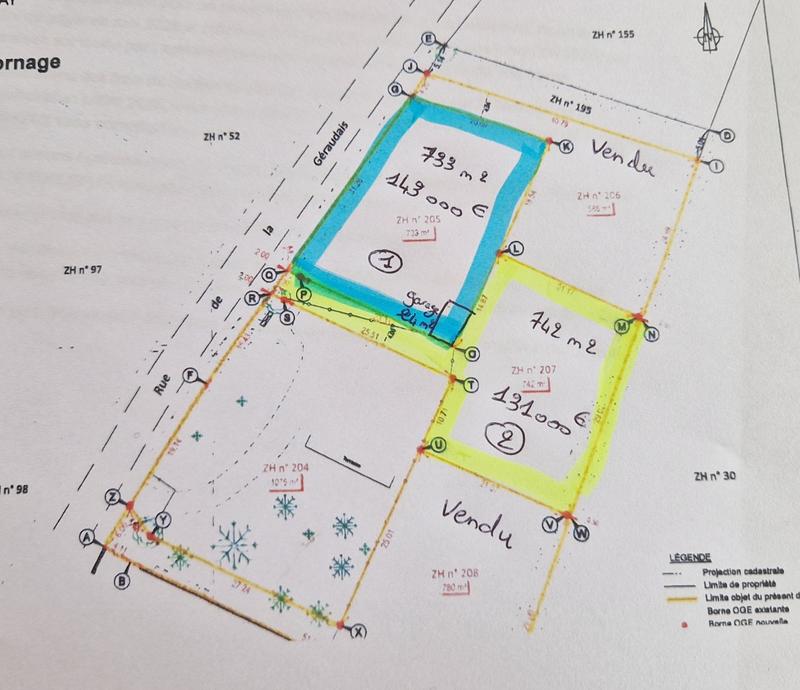 ornage
ZH n° 155
E
J
G
ZH n° 195
ZH n° 52
Géraudais
D
I
K
Vendu
733 m2
143 000 €
ZH n° 205
733 m²
1
ZH n° 206
la
L
2.00
Q
ZH n° 97
R
P
S
garage
24 m2
742 m2
M
N
de
25.51
O
ZH n° 207
742 m²
131 000 €
2
T
Rue
F
10.71
U
ZH n° 204
1075 m²
n° 98
ZH n° 30
Z
Vendu
V
W
Y
A
B
25.01
ZH n° 208
780 m²
X
LÉGENDE
Projection cadastrale
Limite de propriété
Limite objet du présent d
Borne OGE existante
Borne OGE nouvelle